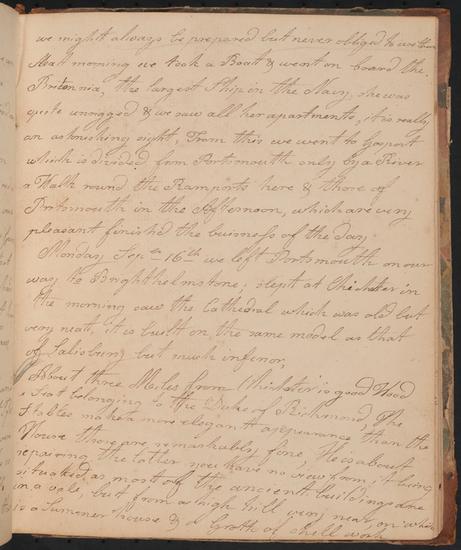 we might always be prepared but never obliged to use them
Next morning we took a Boat & went on board the
Britannia, the largest Ship in the Navy, she was
quite unrigged & we saw all her apartments, it is really
an astonishing sight, From this we went to Gosport
which is divided from Portsmouth only by a River
a Walk round the Ramparts here & those of
Portsmouth in the Afternoon, which are very
pleasant finished the buisness of the Day,
Monday Sepr 16th we left Portsmouth on our
way to Brighthelmstone; slept at Chichester in
the morning saw the Cathedral which was old but
very neat, it is built on the same model as that
of Salisbury but much inferior,
About three Miles from Chichester is good Wood
a Seat belonging to the Duke of Richmond, The
Stables make a more elegant appearance than the
House those are remarkably fine, He is about
repairing the latter you have no view from, it being
situated as most of the ancient buildings are
in a vale, but from a high hill very near on which
is a Summer house & a Grotto of shell work